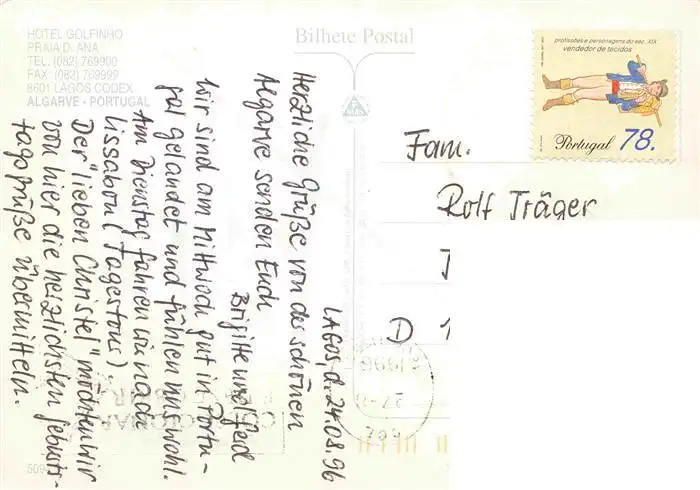 HOTEL GOLFINHO
PRAIA D. ANA
TEL. (082) 769900
FAX: (082) 769999
8601 LAGOS CODEX
ALGARVE - PORTUGAL
Bilhete Postal
profissões e personagens do séc. XIX
vendedor de tecidos
Portugal 78.
LAGOS, d. 24.08.96
Herzliche Grüße von der schönen
Algarve senden Euch
Brigitte und
Wir sind am Mittwoch gut in Portu-
gal gelandet und fühlen uns wohl.
Am Dienstag fahren wir nach
Lissabon (Tagestour).
Der "lieben Christel" möchten wir
von hier die herzlichsten Geburts-
tagsgrüße übermitteln.
Fam.
Rolf Träger
D 1